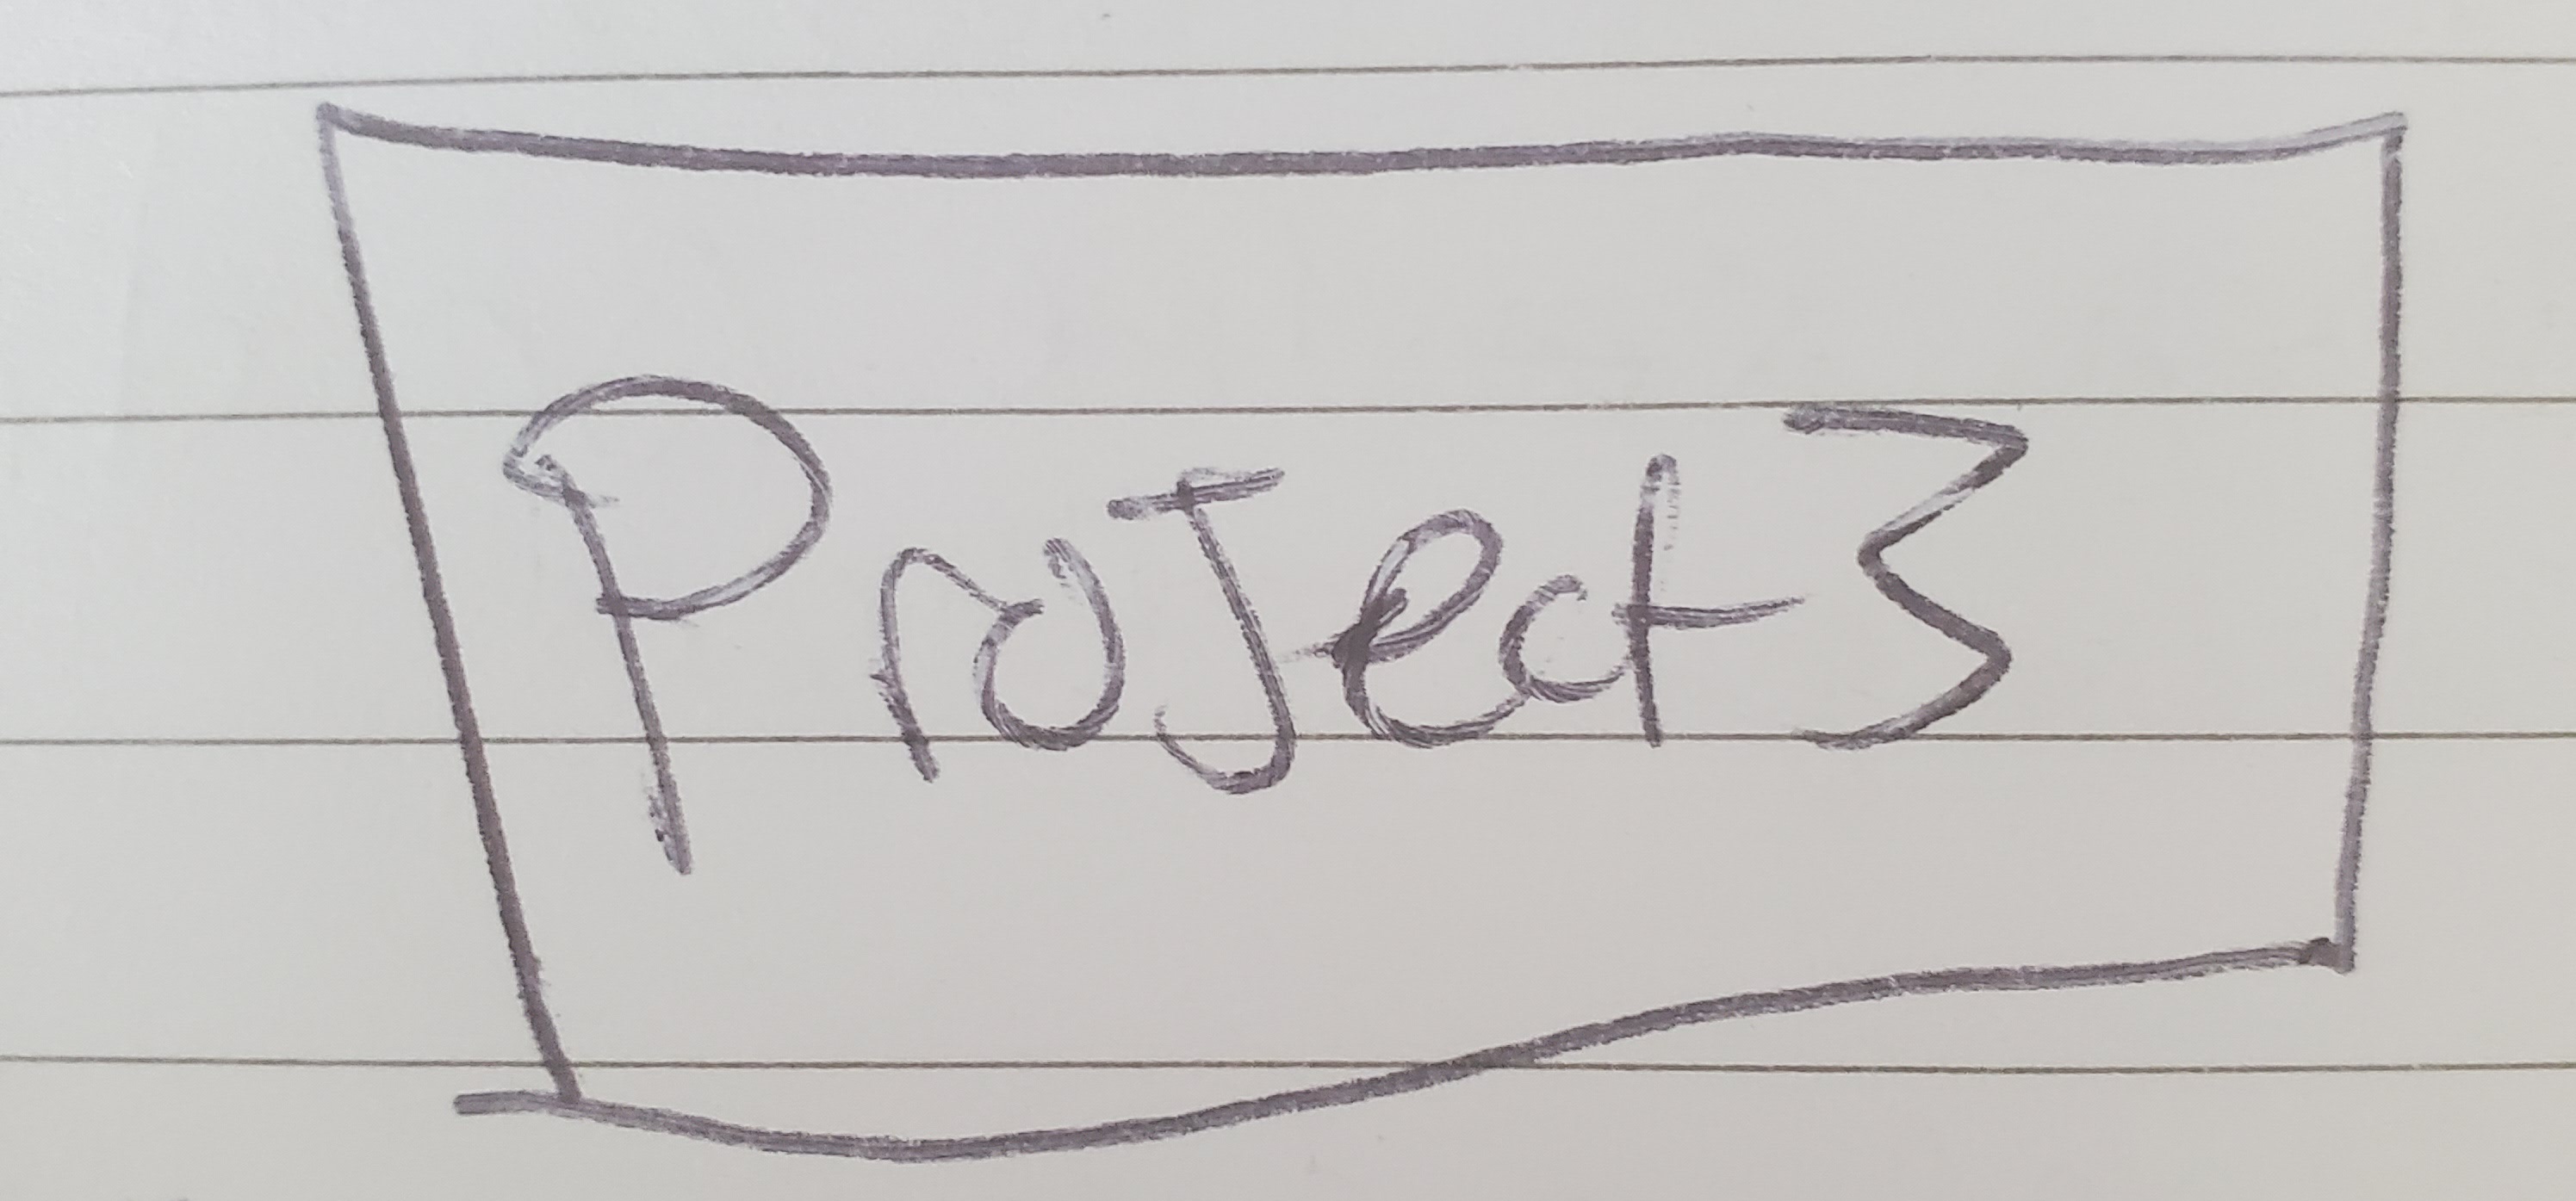 ProJect 3